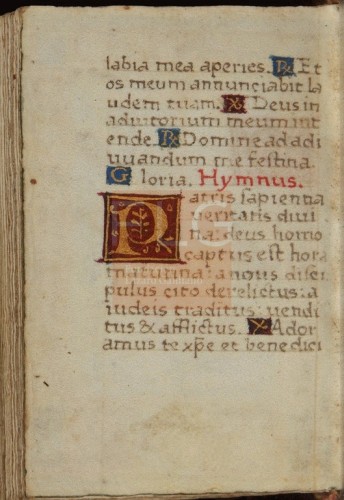 labia mea aperies. R Et
os meum annunciabit la
udem tuam. V Deus in
adiutorium meum int
ende. R Domine ad adi
uuandum me festina.
Gloria. Hymnus.
Patris sapientia
veritatis divi
na: deus homo
captus est hora
matutina: a
pulus cito derelictus: a
iudeis traditus: uendi
tus & afflictus. V Ador
amus te xp̄e et benedici